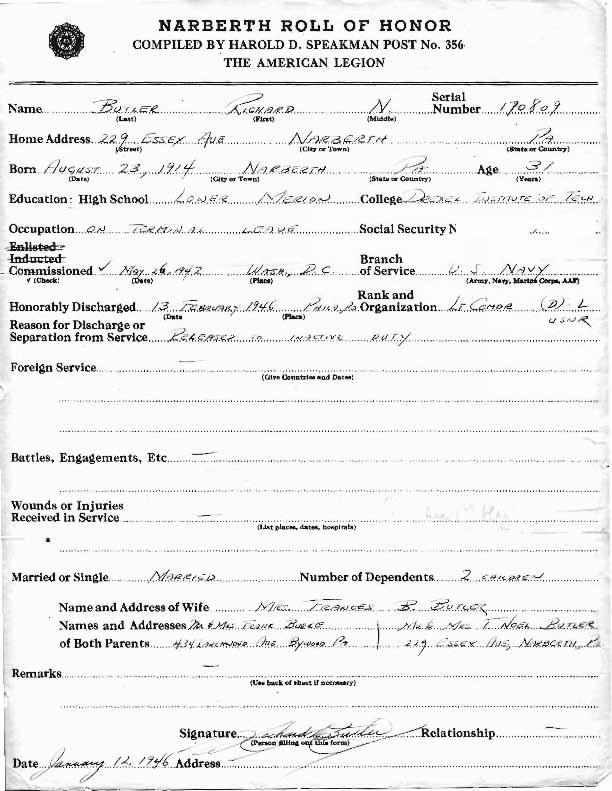 NARBERTH ROLL OF HONOR
COMPILED BY HAROLD D. SPEAKMAN POST No. 356
THE AMERICAN LEGION
Name BUTLER RICHARD N. Serial Number 170809
(Last) (First) (Middle)
Home Address 229 ESSEX AVE NARBERTH PA
(Street) (City or Town) (State or Country)
Born AUGUST 23, 1914 NARBERTH PA Age 31
(Date) (City or Town) (State or Country) (Years)
Education: High School LOWER MERION College DREXEL INSTITUTE OF TECH
Occupation ON TERMINAL LEAVE Social Security N
Enlisted
Inducted
Commissioned ✓ MAY 26, 1942 WASH, D.C. Branch of Service U. S. NAVY
√ (Check) (Date) (Place) (Army, Navy, Marine Corps, AAF)
Honorably Discharged 13 FEBRUARY 1946 PHILA, PA Rank and Organization LT COMDR (D) L
USNR
(Date (Place)
Reason for Discharge or
Separation from Service RELEASED TO INACTIVE DUTY
Foreign Service
(Give Countries and Dates)
Battles, Engagements, Etc.
Wounds or Injuries
Received in Service
(List places, dates, hospitals)
Married or Single MARRIED Number of Dependents 2 CHILDREN
Name and Address of Wife MRS. FRANCES B. BUTLER
Names and Addresses MR & MRS FRANK BURKE MR & MRS T. NOEL BUTLER
of Both Parents 434 AVE BYWOOD PA 229 ESSEX AVE, NARBERTH, PA
Remarks
(Use back of sheet if necessary)
Signature Richard N. Butler Relationship
(Person filling out this form)
Date January 12, 1946 Address